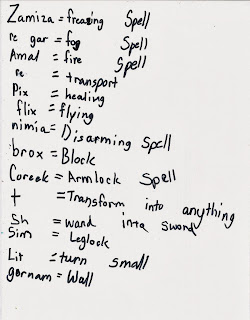 Zamiza = freazing Spell
re gar = fog Spell
Amal = fire Spell
re = transport
Pix = healing
flix = flying
nimia = Disarming Spell
brox = Block
Coreek = Armlock Spell
t = Transform into anything
Sh = wand inta sword
Sim = Leglock
Lit = turn small
gornam = Wall